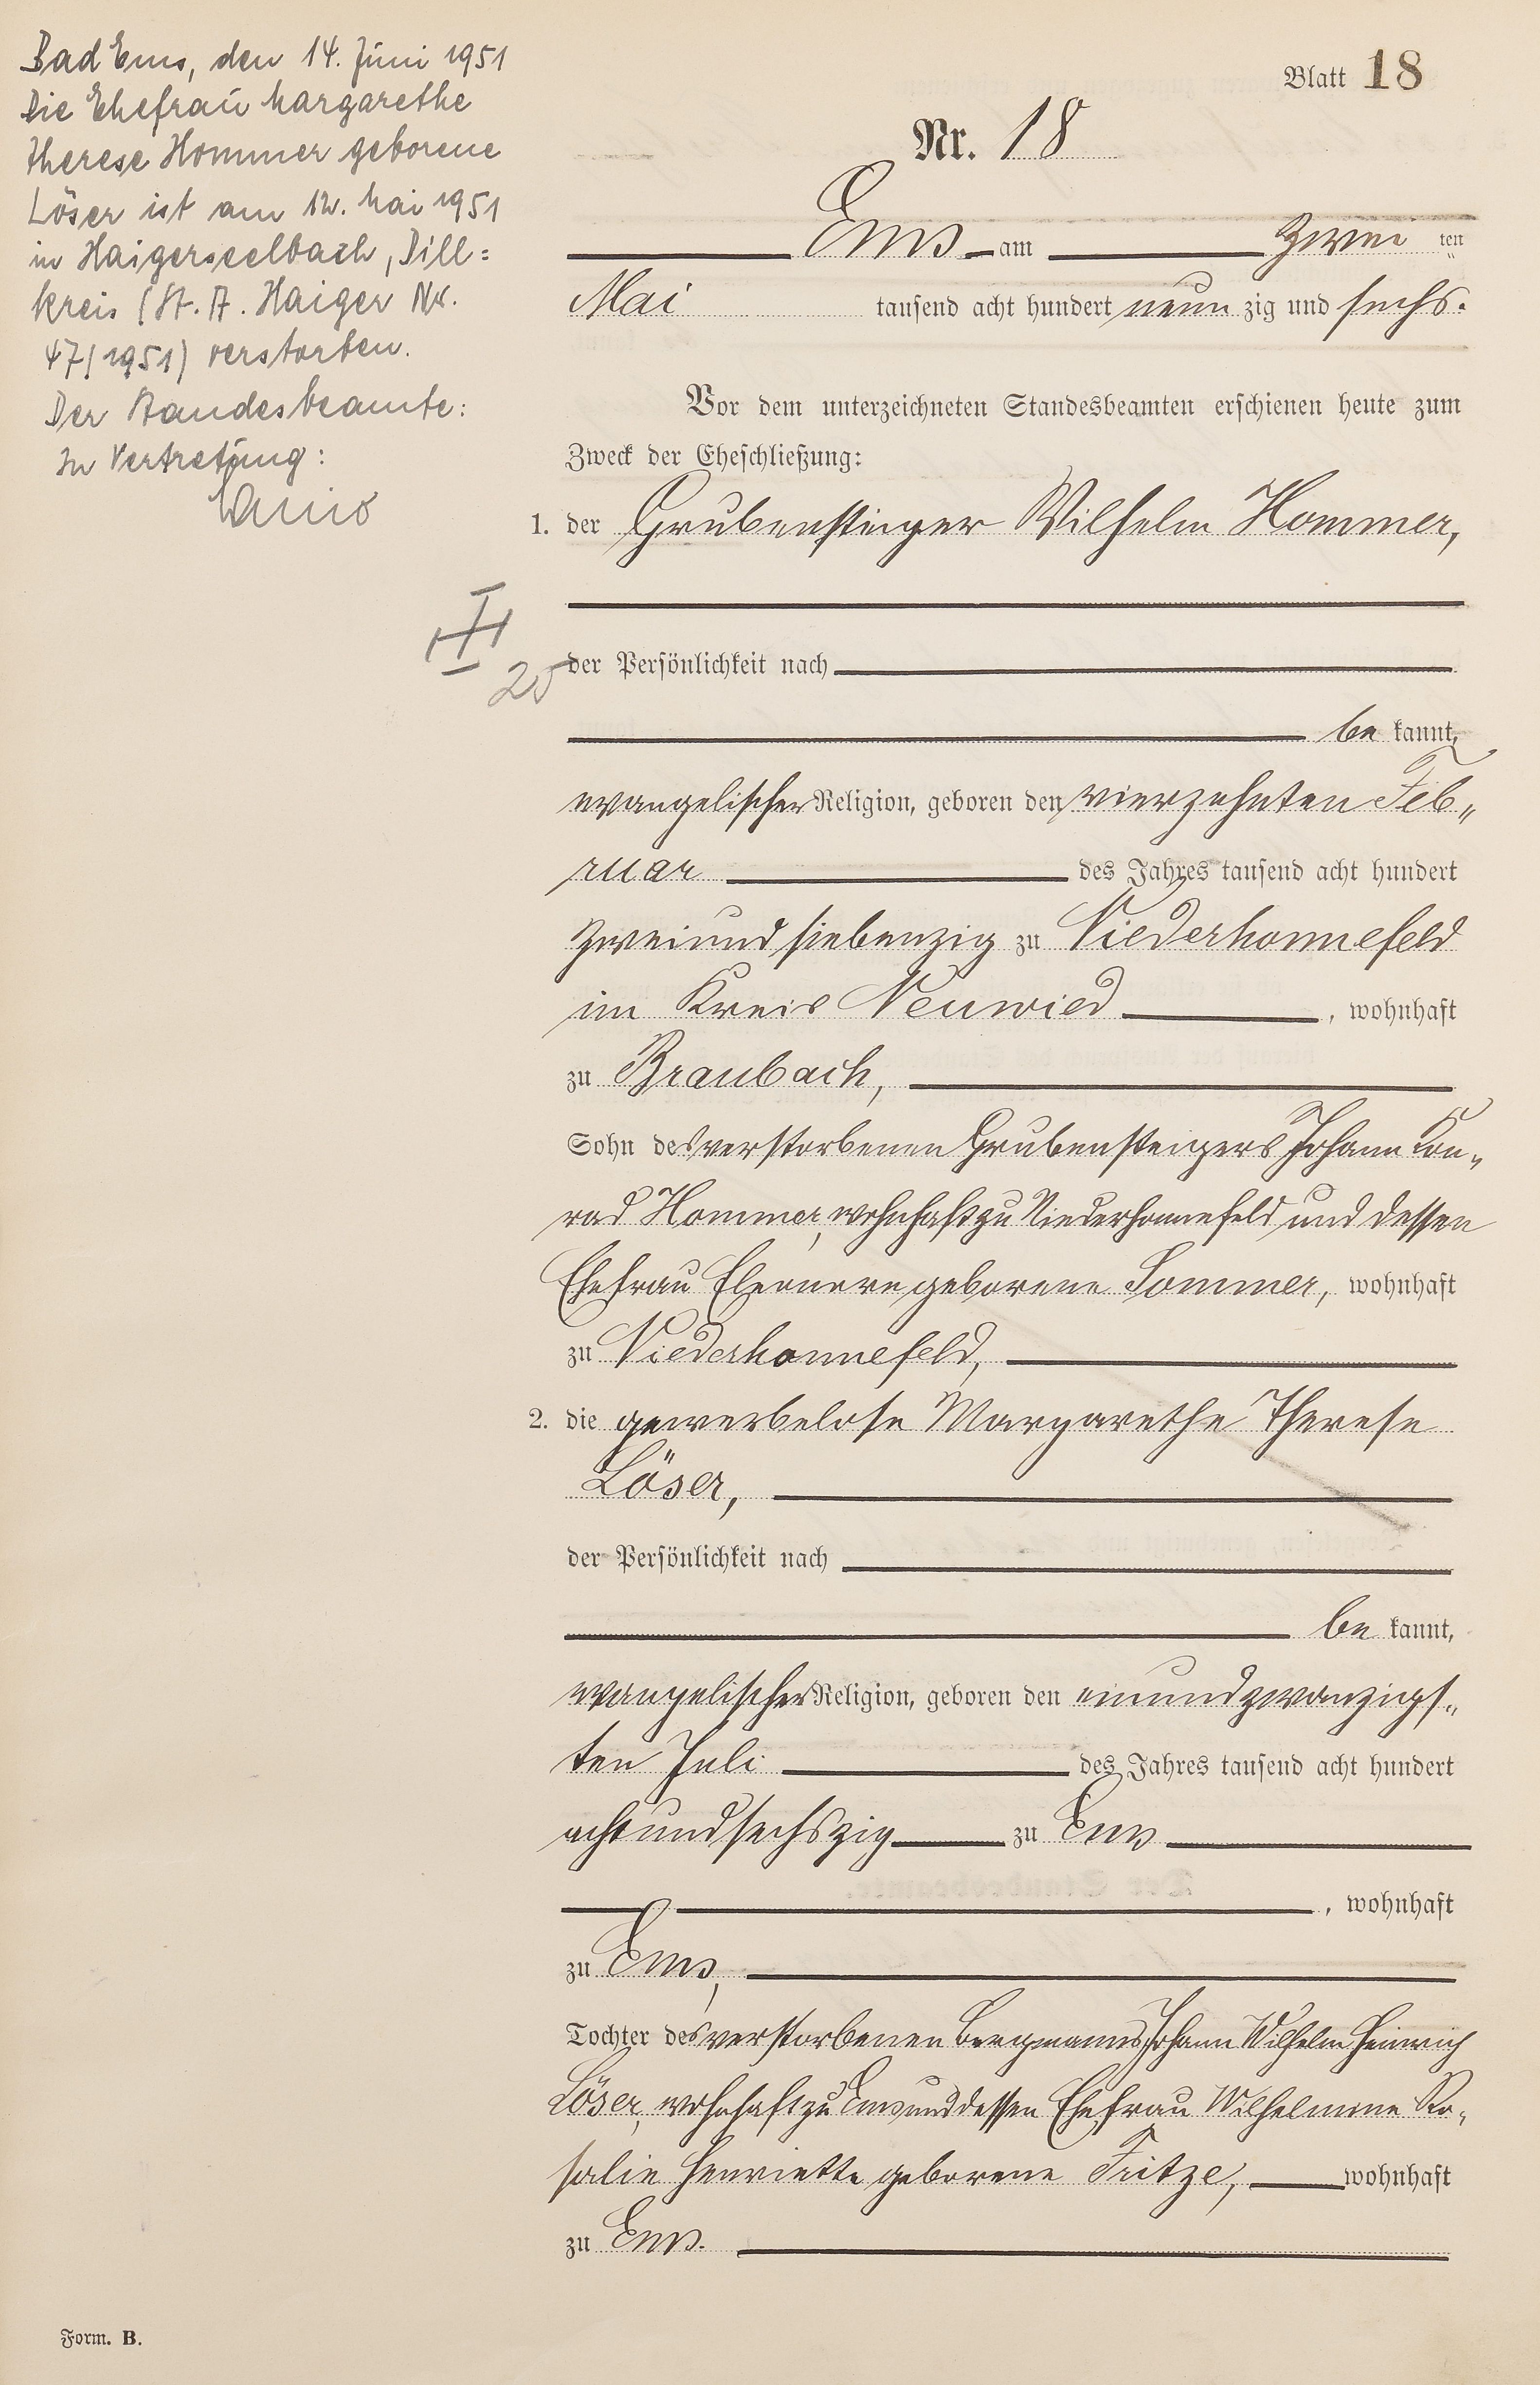 Bad Ems, den 14. Juni 1951
Die Ehefrau Margarethe
Therese Hommer geborene
Löser ist am 12. Mai 1951
in Haigerseelbach, Dill=
kreis (St. A. Haiger Nr.
47/1951) verstorben.
Der Standesbeamte:
In Vertretung:
Blatt 18
Nr. 18
Ems am zwei ten
Mai tausend acht hundert neun zig und sechs.
Vor dem unterzeichneten Standesbeamten erschienen heute zum
Zweck der Eheschließung:
1. der Grubensteiger Wilhelm Hommer,
der Persönlichkeit nach
25
be kannt,
evangelischer Religion, geboren den vierzehnten Feb„
ruar des Jahres tausend acht hundert
zweiundsiebenzig zu Niederhonnefeld
im Kreis Neuwied, wohnhaft
zu Braubach,
Sohn des verstorbenen Grubensteigers Johann Kon„
rad Hommer, wohnhaft zu Niederhonnefeld und dessen
Ehefrau Eleonore geborene Sommer, wohnhaft
zu Niederhonnefeld,
2. die gewerbelose Margarethe Therese
Löser,
der Persönlichkeit nach
be kannt,
evangelischer Religion, geboren den einundzwanzigs„
ten Juli des Jahres tausend acht hundert
achtundsechszig zu Ems
, wohnhaft
zu Ems,
Tochter des verstorbenen Bergmanns Johann Wilhelm Heinrich
Löser, wohnhaft zu Ems und dessen Ehefrau Wilhelmine Ro„
salie Henriette geborene Fritze, wohnhaft
zu Ems.
Form. B.